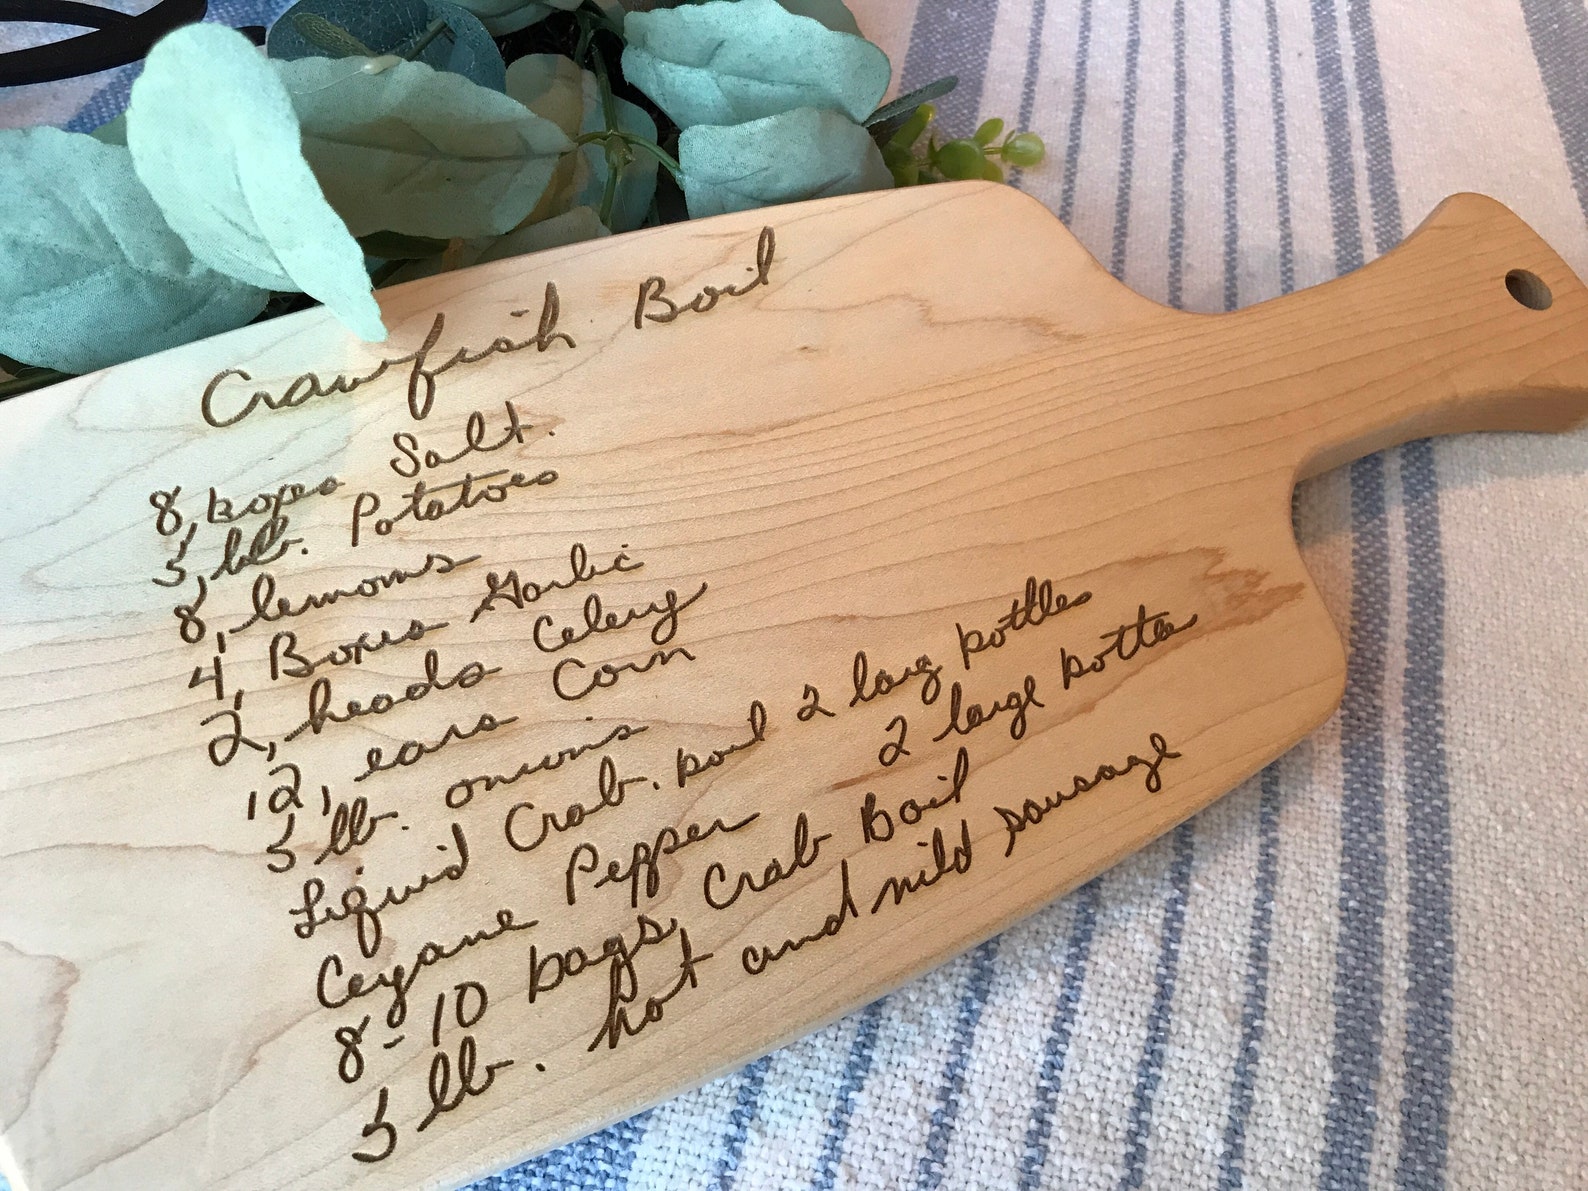 Crawfish Boil
8, boxes Salt.
5, lb. Potatoes
8, lemons
4, Boxes Garlic
2, heads Celery
12, ears Corn
5 lb. onions
Liquid Crab. boil 2 larg bottles
Ceyane Pepper 2 large bottles
8-10 bags, Crab Boil
5 lb. hot and mild sausage